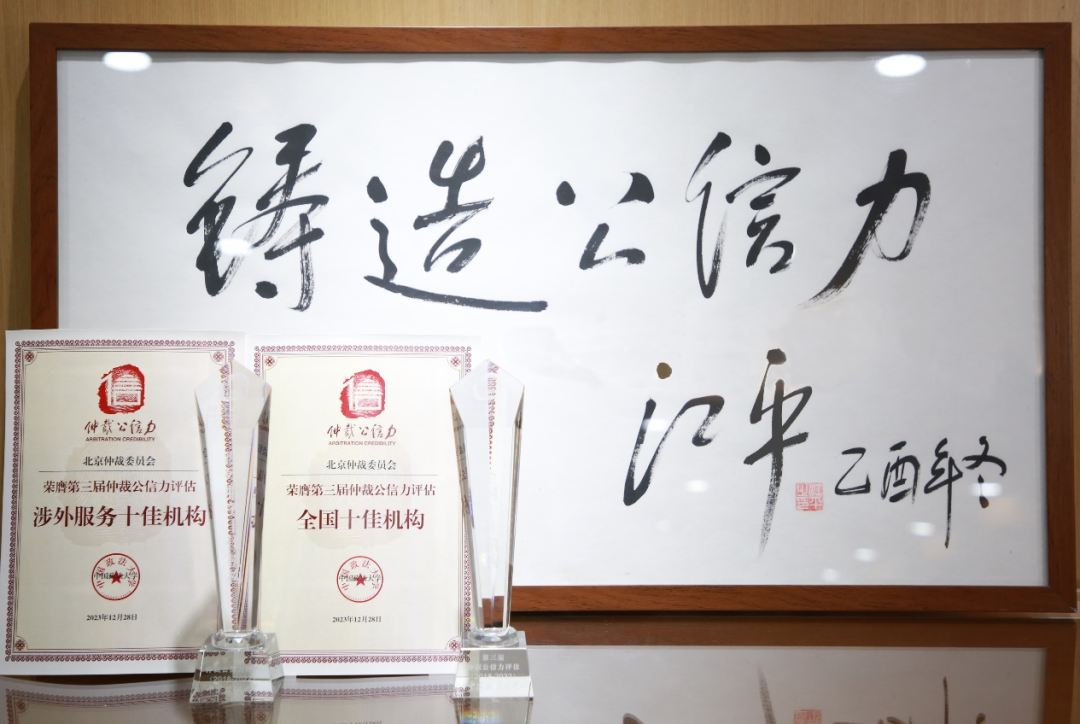 铸造公信力
江平
乙酉年冬
仲裁公信力
ARBITRATION CREDIBILITY
北京仲裁委员会
荣膺第三届仲裁公信力评估
涉外服务十佳机构
中国政法大学
2023年12月28日
仲裁公信力
ARBITRATION CREDIBILITY
北京仲裁委员会
荣膺第三届仲裁公信力评估
全国十佳机构
中国政法大学
2023年12月28日
第三届
公信力评估